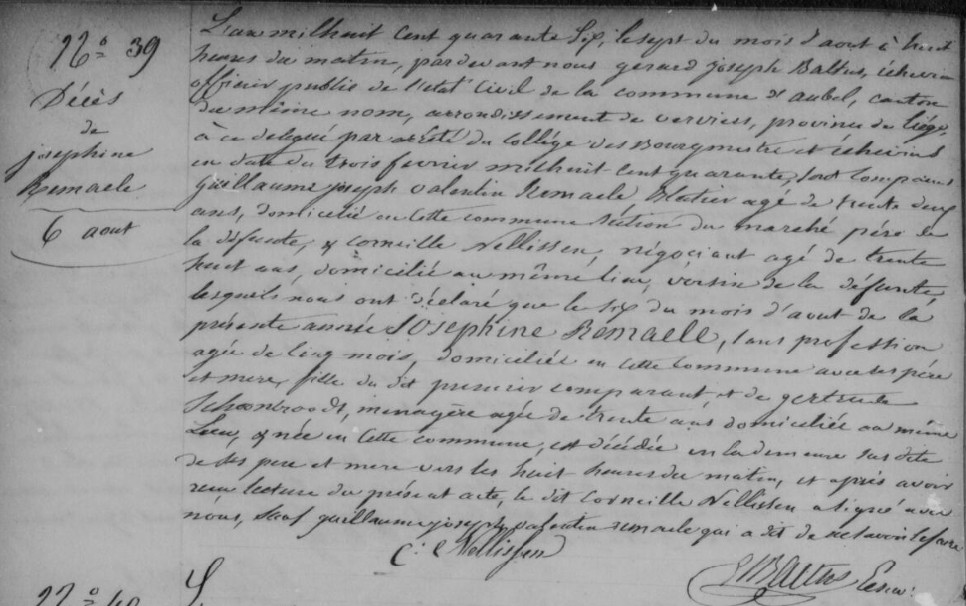 N° 39
Décès
de
josephine
Remacle
6 aout
L'an mil huit Cent quarante Six, le sept du mois d'aout à huit
heures du matin, pardevant nous gerard joseph Baltus, échevin
officier public de l'état Civil de la commune d'aubel, canton
du même nom, arrondissement de verviers, province de liége,
à ce delegué par arrêté du Collége des Bourgmestre et échevins
en date du trois fevrier mil huit Cent quarante, sont comparus
Guillaume joseph valentin Remacle, agé de trente deux
ans, domicilié en Cette commune Section du marché père de
la défunte, & Corneille Nellissen, négociant agé de trente
huit ans, domicilié au même lieu, voisin de la défunte,
lesquels nous ont déclaré que le six du mois d'aout de la
présente année Joséphine Remacle, sans profession
agée de Cinq mois, domiciliée en Cette Commune avec ses père
et mere, fille du dit premier comparant, et de gertrude
Schoonbroodt, menagère agée de trente ans domiciliée au même
Lieu, & née en Cette commune, est décédée en la demeure sus dite
de ses pere et mere vers les huit heures du matin, et après avoir
reçu lecture du présent acte, le dit Corneille Nellissen a signé avec
nous, Sauf guillaume joseph valentin remacle qui a dit de ne savoir le faire
C. Nellissen
GJBaltus Eschn.
N° 40
L